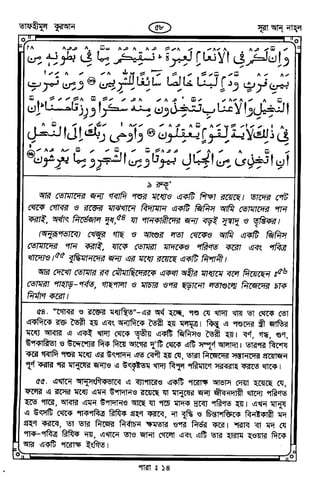 তাফহীমুল কুরআন ৫৮ সূরা আন্ নাহ্‌ল
وَإِنَّ لَكُمْ فِي الْأَنْعَامِ لَعِبْرَةً نُسْقِيكُمْ مِمَّا فِي بُطُونِهِ مِنْ
بَيْنِ فَرْثٍ وَدَمٍ لَبَنًا خَالِصًا سَائِغًا لِلشَّارِبِينَ ۝ وَمِنْ ثَمَرَاتِ
النَّخِيلِ وَالْأَعْنَابِ تَتَّخِذُونَ مِنْهُ سَكَرًا وَرِزْقًا حَسَنًا إِنَّ
فِي ذَٰلِكَ لَآيَةً لِقَوْمٍ يَعْقِلُونَ ۝ وَأَوْحَىٰ رَبُّكَ إِلَى النَّحْلِ
أَنِ اتَّخِذِي مِنَ الْجِبَالِ بُيُوتًا وَمِنَ الشَّجَرِ وَمِمَّا يَعْرِشُونَ ۝
৯ রুকূ'
আর তোমাদের জন্য গবাদি পশুর মধ্যেও একটি শিক্ষা রয়েছে। তাদের পেট
থেকে গোবর ও রক্তের মাঝখানে বিদ্যমান একটি জিনিস আমি তোমাদের পান
করাই, অর্থাৎ নির্ভেজাল দুধ,৫৪ যা পানকারীদের জন্য বড়ই সুস্বাদু ও তৃপ্তিকর।
(অনুরূপভাবে) খেজুর গাছ ও আংগুর লতা থেকেও আমি একটি জিনিস
তোমাদের পান করাই, যাকে তোমরা মাদকেও পরিণত করো এবং পবিত্র
খাদ্যেও।৫৫ বুদ্ধিমানদের জন্য এর মধ্যে রয়েছে একটি নিশানী।
আর দেখো তোমার রব মৌমাছিদেরকে একথা অহীর মাধ্যমে বলে দিয়েছেন :৫৬
তোমরা পাহাড়-পর্বত, গাছপালা ও মাচার ওপর ছড়ানো লতাগুল্মে নিজেদের চাক
নির্মাণ করো।
৫৪. "গোবর ও রক্তের মধ্যস্থিত"-এর অর্থ হচ্ছে, পশু যে খাদ্য খায় তা থেকে তো
একদিকে রক্ত তৈরী হয় এবং অন্যদিকে তৈরী হয় মলমূত্র। কিন্তু এ পশুদের স্ত্রী জাতির
মধ্যে আবার এ একই খাদ্য থেকে তৃতীয় একটি জিনিসও তৈরী হয়। বর্ণ, গন্ধ, গুণ,
উপকারিতা ও উদ্দেশ্যের দিক দিয়ে আগের দু'টি থেকে এটি সম্পূর্ণ আলাদা। তারপর বিশেষ
করে গবাদি পশুর মধ্যে এর উৎপাদন এত বেশী হয় যে, তারা নিজেদের সন্তানদের প্রয়োজন
পূর্ণ করার পর মানুষের জন্যও এ উৎকৃষ্টতম খাদ্য বিপুল পরিমাণে সরবরাহ করতে থাকে।
৫৫. এখানে আনুসংগিকভাবে এ ব্যাপারেও একটি পরোক্ষ আভাস দেয়া হয়েছে যে,
ফলের এ রসের মধ্যে এমন উপাদানও রয়েছে যা মানুষের জন্য জীবনদায়ী খাদ্যে পরিণত
হতে পারে, আবার এমন উপাদানও আছে যা পচে মাদক দ্রব্যে পরিণত হয়। এখন মানুষ
এ উৎসটি থেকে পাকপবিত্র রিযিক গ্রহণ করবে, না বুদ্ধি ও চিন্তাশক্তিকে বিনষ্টকারী মদ
গ্রহণ করবে, তা তার নিজের নির্বাচন ক্ষমতার ওপর নির্ভর করে। শরাব বা মদ যে
পাক-পবিত্র রিযিক নয়, এখানে তাও জানা গেলো এবং এটি তার হারাম হওয়ার দিকে
আর একটি পরোক্ষ ইংগিত।
পারা : ১৪